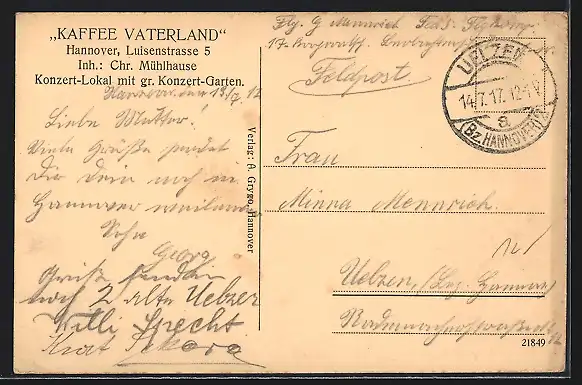 „KAFFEE VATERLAND“
Hannover, Luisenstrasse 5
Inh.: Chr. Mühlhause
Konzert-Lokal mit gr. Konzert-Garten.
Hannover, den 13/7 17
Liebe Mutter!
Viele Grüße sendet
Dir Dein noch in
Hannover weilender
Sohn
Georg
Grüße senden
noch 2 alte Uelzer
Willi Specht
Kurt
Verlag: A. Grygo, Hannover
Flg. G Mennrich
Feldpost
UELZEN
14.7.17.12-1 N
a
(Bz. HANNOVER)
Frau
Minna Mennrich.
Uelzen, (Bez. Hannover)
21849